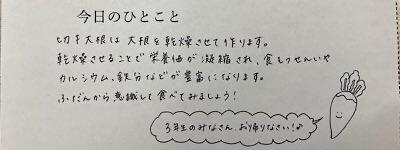 今日のひとこと
切干大根は大根を乾燥させて作ります。
乾燥させることで栄養価が凝縮され、食もつせんいや
カルシウム、鉄分などが豊富になります。
ふだんから意識して食べてみましょう！
3年生のみなさん、お帰りなさい！♪